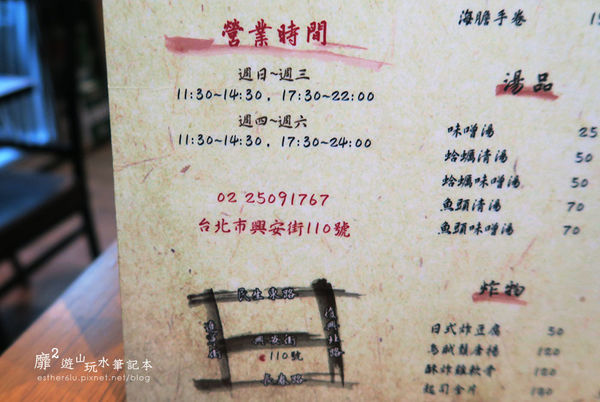 營業時間
週日~週三
11:30~14:30 , 17:30~22:00
週四~週六
11:30~14:30 , 17:30~24:00
02 25091767
台北市興安街110號
民生東路
復興北路
興安街
110號
長春路
海膽手卷
湯品
味噌湯 25
蛤蠣清湯 50
蛤蠣味噌湯 50
魚頭清湯 70
魚頭味噌湯 70
炸物
日式炸豆腐 50
酥炸雞軟骨 180
起司金片 180
靡²遊山玩水筆記本
esther6lu.pixnet.net/blog